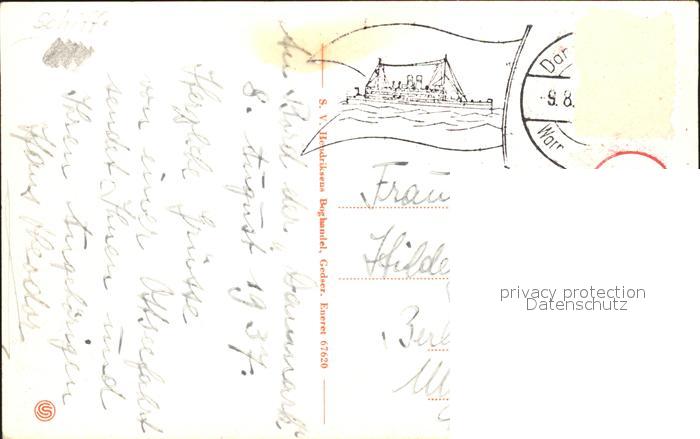 Schiffe
An Bord der "Danmark"
8. August 1937.
Herzliche Grüsse
von einer Ostseefahrt
sendet Ihnen und
Ihren Angehörigen
Hans
S. V. Hendriksens Boghandel, Gedser. Eneret 67620
9.8.
Dar
Warn
Frau
Hilde
Berl
privacy protection
Datenschutz